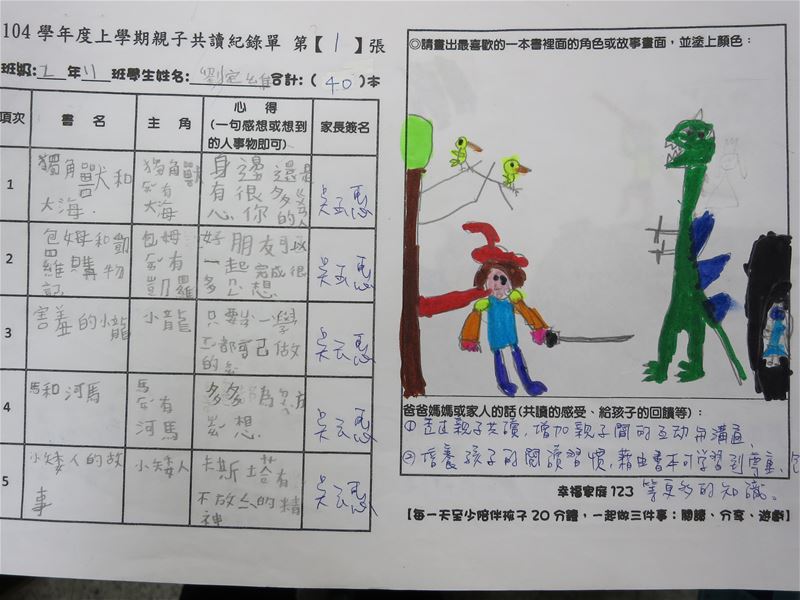 104 學年度上學期親子共讀紀錄單 第【 1 】張
班級: 年 班學生姓名: 合計:( 40 )本
項次
書 名
主 角
心 得
(一句感想或想到
的人事物即可)
家長簽名
1
獨角獸和
大海.
獨角獸
還有
大海
身邊還是
有很多
心你的人
2
包姆和凱
羅購物
記
包姆
還有
凱羅
好朋友可以
一起完成很
多
想
3
害羞的小龍
小龍
只要
一學
都
己做
的
4
馬和河馬
馬
還有
河馬
多多為
想
5
小矮人的故
事
小矮人
卡斯塔有
不放
的精
神
◎請畫出最喜歡的一本書裡面的角色或故事畫面，並塗上顏色：
爸爸媽媽或家人的話(共讀的感受、給孩子的回饋等)：
① 親子共讀，增加親子間的互动與溝通
② 培養孩子的閱讀習慣，藉由書本可學習到尊重、
等更多的知識。
幸福家庭 123
【每一天至少陪伴孩子 20 分鐘，一起做三件事：閱讀、分享、遊戲】